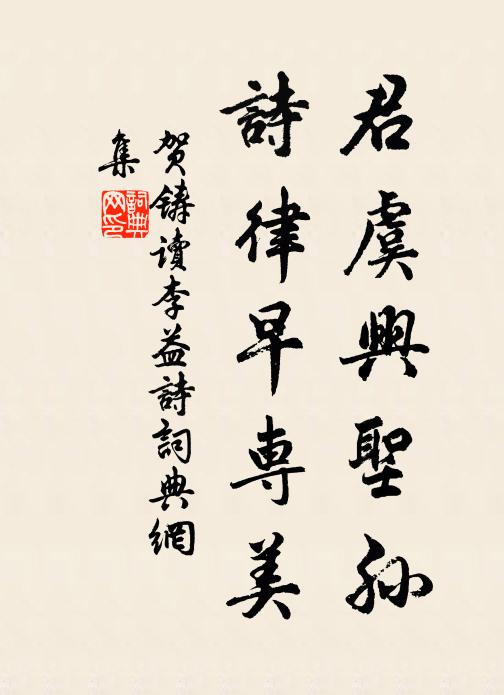 君虞興聖孫
詩律早專美
賀鑄讀李益詩詞典網
集
詞典
网印